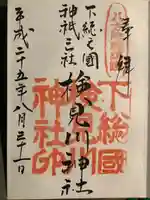 奉拝
下総之國
神祇三社
検見川神社
平成二十五年八月三十一日
下総國
神社印